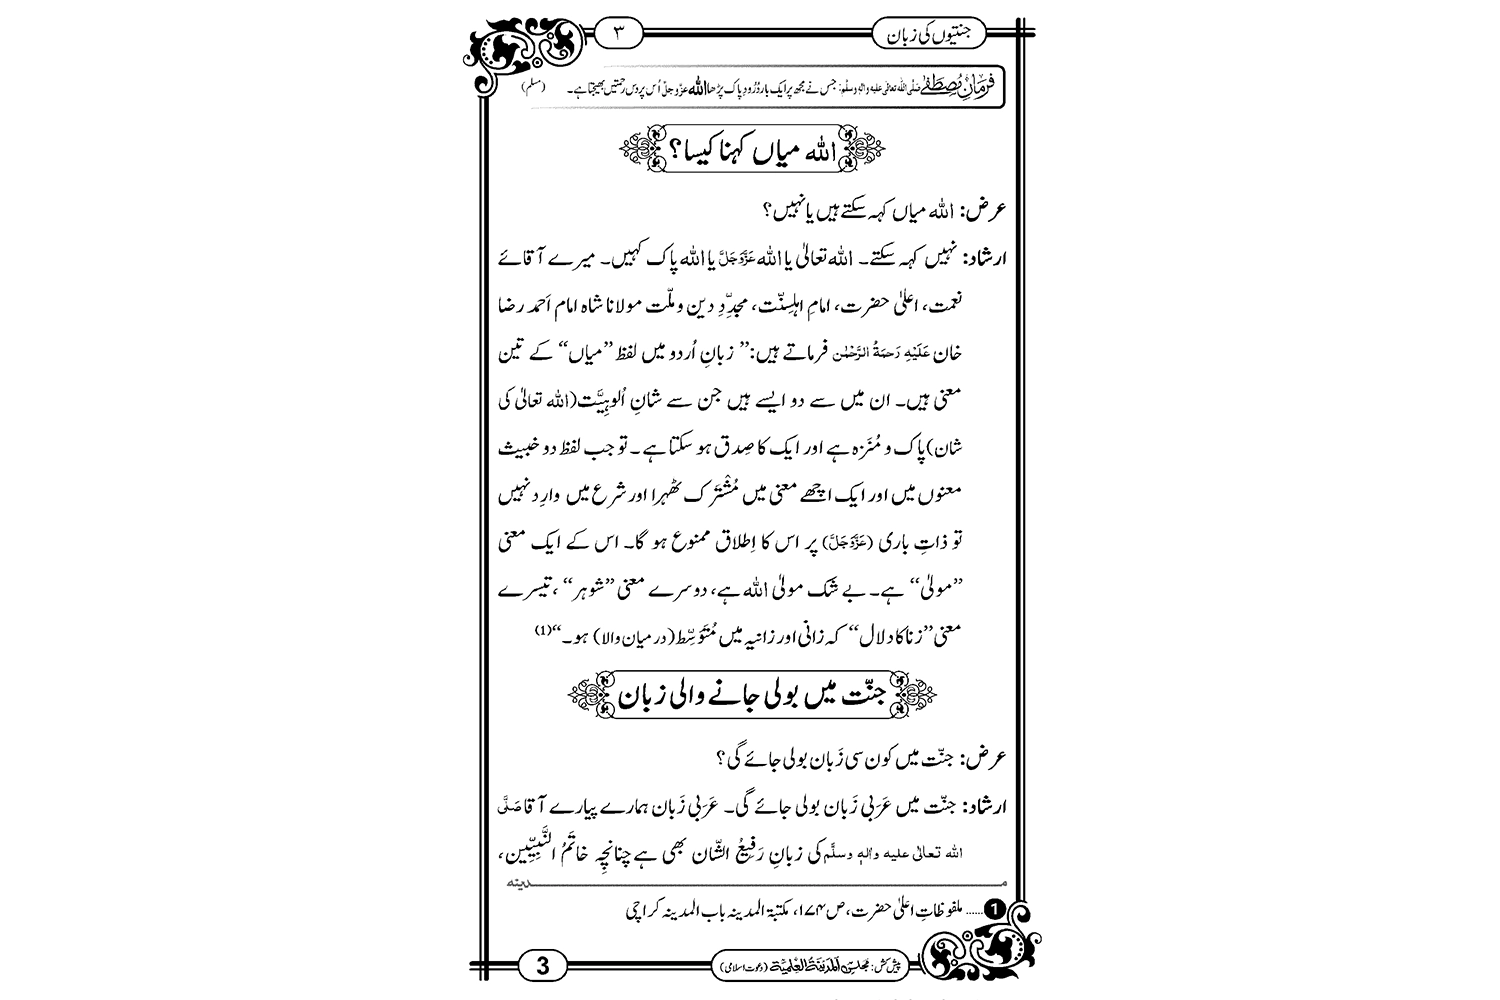 جنتیوں کی زبان
۳
فرمانِ مُصطَفٰے صلَّی اللہ تعالٰی علیہ واٰلہٖ وسلَّم: جس نے مجھ پر ایک بار دُرُودِ پاک پڑھا اللہ عزّوجلّ اُس پر دس رحمتیں بھیجتا ہے۔ (مسلم)
اللہ میاں کہنا کیسا؟
عرض: اللہ میاں کہہ سکتے ہیں یا نہیں؟
ارشاد: نہیں کہہ سکتے۔ اللہ تعالیٰ یا اللہ عَزَّوَجَلَّ یا اللہ پاک کہیں۔ میرے آقائے
نعمت، اعلیٰ حضرت، امامِ اہلِسنّت، مجدِّدِ دین و ملّت مولانا شاہ امام اَحمد رضا
خان عَلَیْہِ رَحمَۃُ الرَّحْمٰن فرماتے ہیں:” زبانِ اُردو میں لفظ ”میاں“ کے تین
معنی ہیں۔ ان میں سے دو ایسے ہیں جن سے شانِ اُلوہِیَّت(اللہ تعالیٰ کی
شان)پاک و مُنَزہ ہے اور ایک کا صِدق ہو سکتا ہے۔ تو جب لفظ دو خبیث
معنوں میں اور ایک اچھے معنی میں مُشْتَرَک ٹھہرا اور شرع میں وارِد نہیں
تو ذاتِ باری (عَزَّوَجَلَّ) پر اس کا اِطلاق ممنوع ہو گا۔ اس کے ایک معنی
”مولیٰ“ ہے۔ بے شک مولیٰ اللہ ہے، دوسرے معنی ”شوہر“ ،تیسرے
معنی ”زنا کا دلال“ کہ زانی اور زانیہ میں مُتَوَسِّط(درمیان والا) ہو۔“(1)
جنّت میں بولی جانے والی زبان
عرض: جنّت میں کون سی زَبان بولی جائے گی؟
ارشاد: جنّت میں عَرَبی زَبان بولی جائے گی۔ عَرَبی زَبان ہمارے پیارے آقا صَلَّی
اللہ تعالیٰ علیہ واٰلہٖ وسلَّم کی زبانِ رَفِیعُ الشّان بھی ہے چنانچہ خاتَمُ النَّبِیِّین،
مـدینہ
1 ...... ملفوظاتِ اعلیٰ حضرت، ص ۱۷۴، مکتبۃ المدینہ باب المدینہ کراچی
پیش کش: مجلس المدینۃ العلمیۃ (دعوتِ اسلامی)
3